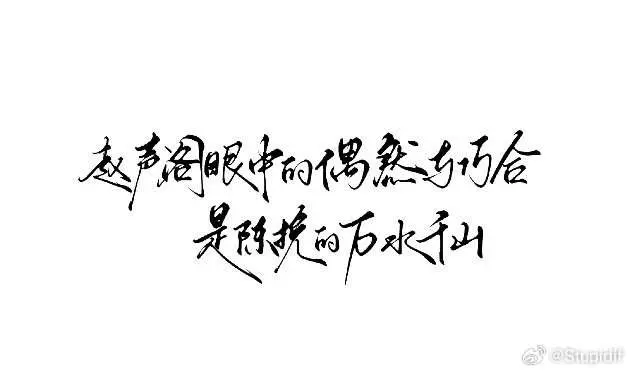 赵声阁眼中的偶然与巧合
是陈挽的万水千山
@Stupidif